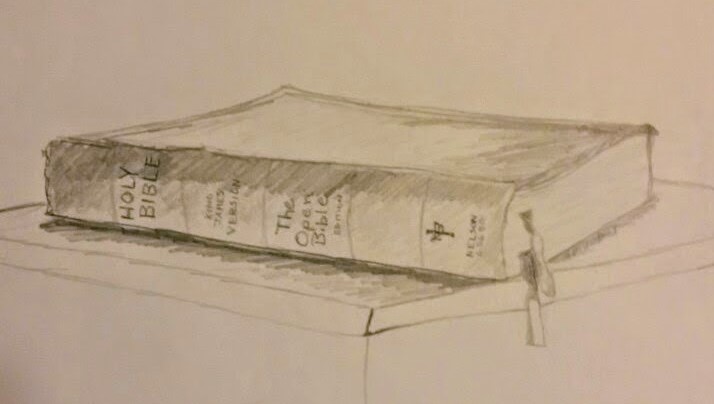 HOLY
BIBLE
KING
JAMES
VERSION
The
Open
Bible
EDITION
NELSON